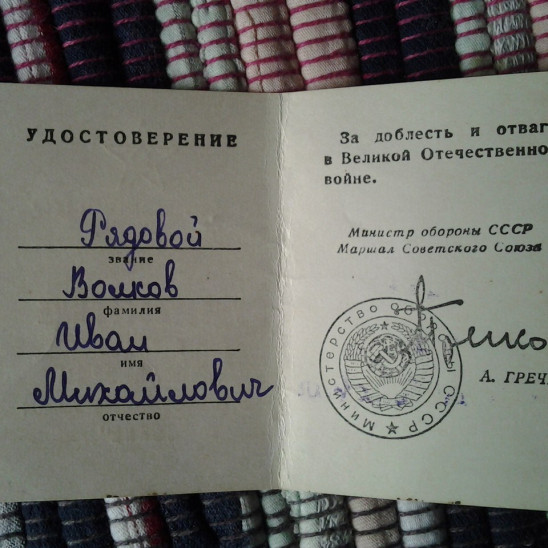 УДОСТОВЕРЕНИЕ
Рядовой
звание
Волков
фамилия
Иван
имя
Михайлович
отчество
За доблесть и отваг
в Великой Отечественно
войне.
Министр обороны СССР
Маршал Советского Союза
Министерство Обороны СССР
А. ГРЕЧ